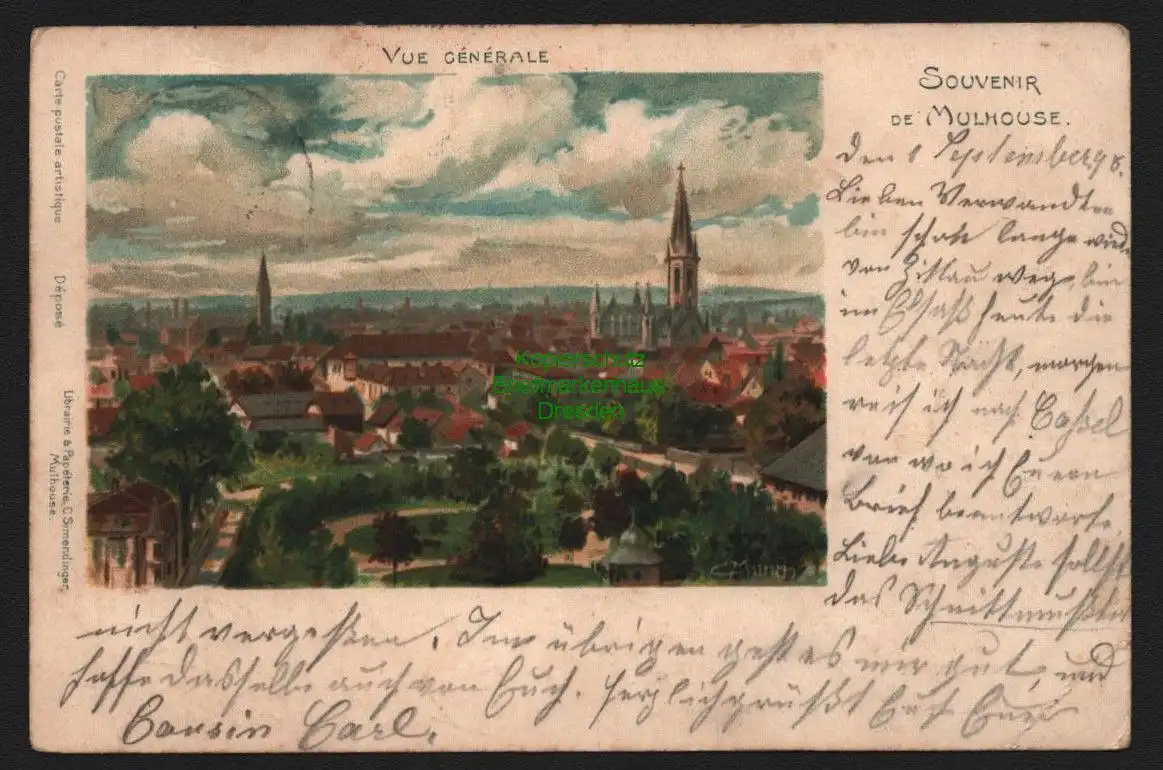 VUE GÉNÉRALE
SOUVENIR
DE MULHOUSE.
Carte postale artistique
Déposé
Librairie & Papéterie C. Simendinger,
Mulhouse.
Koperschutz
Briefmarkenhaus
Dresden
C. Münch
den 1 September 98.
Lieben Verwandten
bin schon lange wied
von Zittau weg, bin
im Elsaß heute die
letzte Nacht, morgen
reis ich nach Cassel
von wo ich Euren
Brief beantworte.
Liebe Auguste sollst
das Schnittmuster
nicht vergessen. Im übrigen geht es mir gut, und
hoffe dasselbe auch von Euch. herzlich grüßt Euch Euer
Cousin Carl.